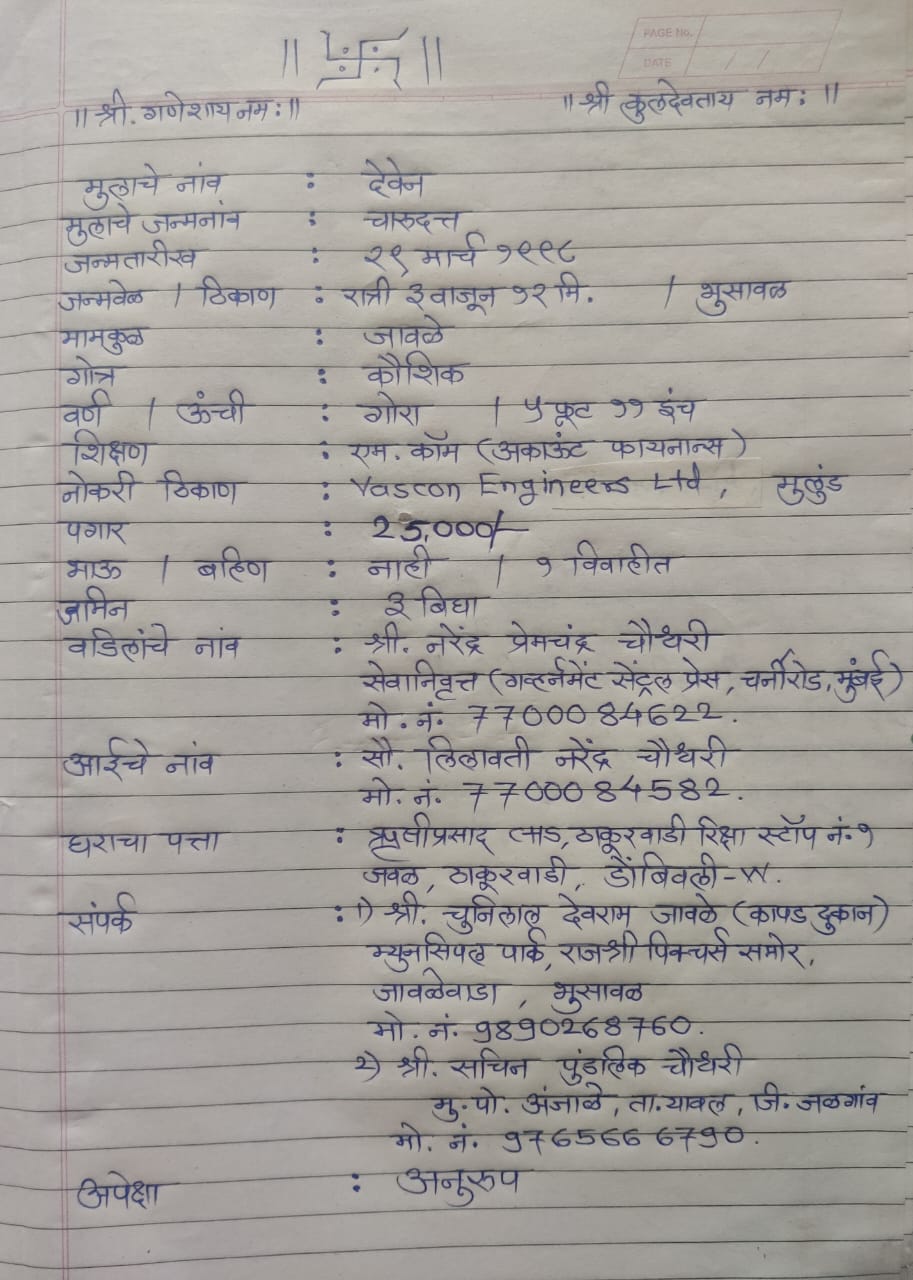 || 卐 ||
PAGE No.
DATE / /
|| श्री. गणेशाय नमः ||   || श्री कुलदेवताय नमः ||
मुलाचे नांव : देवेन
मुलाचे जन्मनांव : चारुदत्त
जन्मतारीख : २१ मार्च १९९८
जन्मवेळ / ठिकाण : रात्री ३ वाजून १२ मि. / भुसावळ
मामकुळ : जावळे
गोत्र : कौशिक
वर्ण / ऊंची : गोरा / ५ फूट ११ इंच
शिक्षण : एम. कॉम (अकाऊंट फायनान्स)
नोकरी ठिकाण : Vascon Engineers Ltd, मुलुंड
पगार : 25,000/-
भाऊ / बहिण : नाही / १ विवाहीत
जमिन : ३ बिघा
वडिलांचे नांव : श्री. नरेंद्र प्रेमचंद्र चौधरी
सेवानिवृत्त (गव्हर्नमेंट सेंट्रल प्रेस, चर्नीरोड, मुंबई)
मो. नं. 7700084622.
आईचे नांव : सौ. लिलावती नरेंद्र चौधरी
मो. नं. 7700084582.
घराचा पत्ता : लाड, ठाकूरवाडी रिक्षा स्टॉप नं. १
जवळ, ठाकूरवाडी, डोंबिवली-W.
संपर्क : 1) श्री. चुनिलाल देवराम जावळे (कापड दुकान)
म्युनसिपल पार्क, राजश्री पिक्चर्स समोर,
जावळेवाडा, भुसावळ
मो. नं. 9890268760.
2) श्री. सचिन पुंडलिक चौधरी
मु. पो. अंजाळे, ता. यावल, जि. जळगांव
मो. नं. 9765666790.
अपेक्षा : अनुरुप